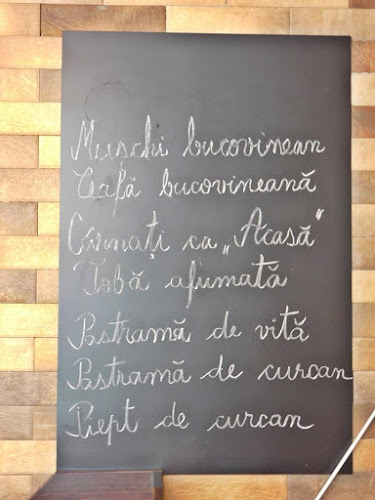 Muschi bucovinean
Ceafă bucovineană
Cârnați ca „Acasă"
Tobă afumată
Pastramă de vită
Pastramă de curcan
Piept de curcan